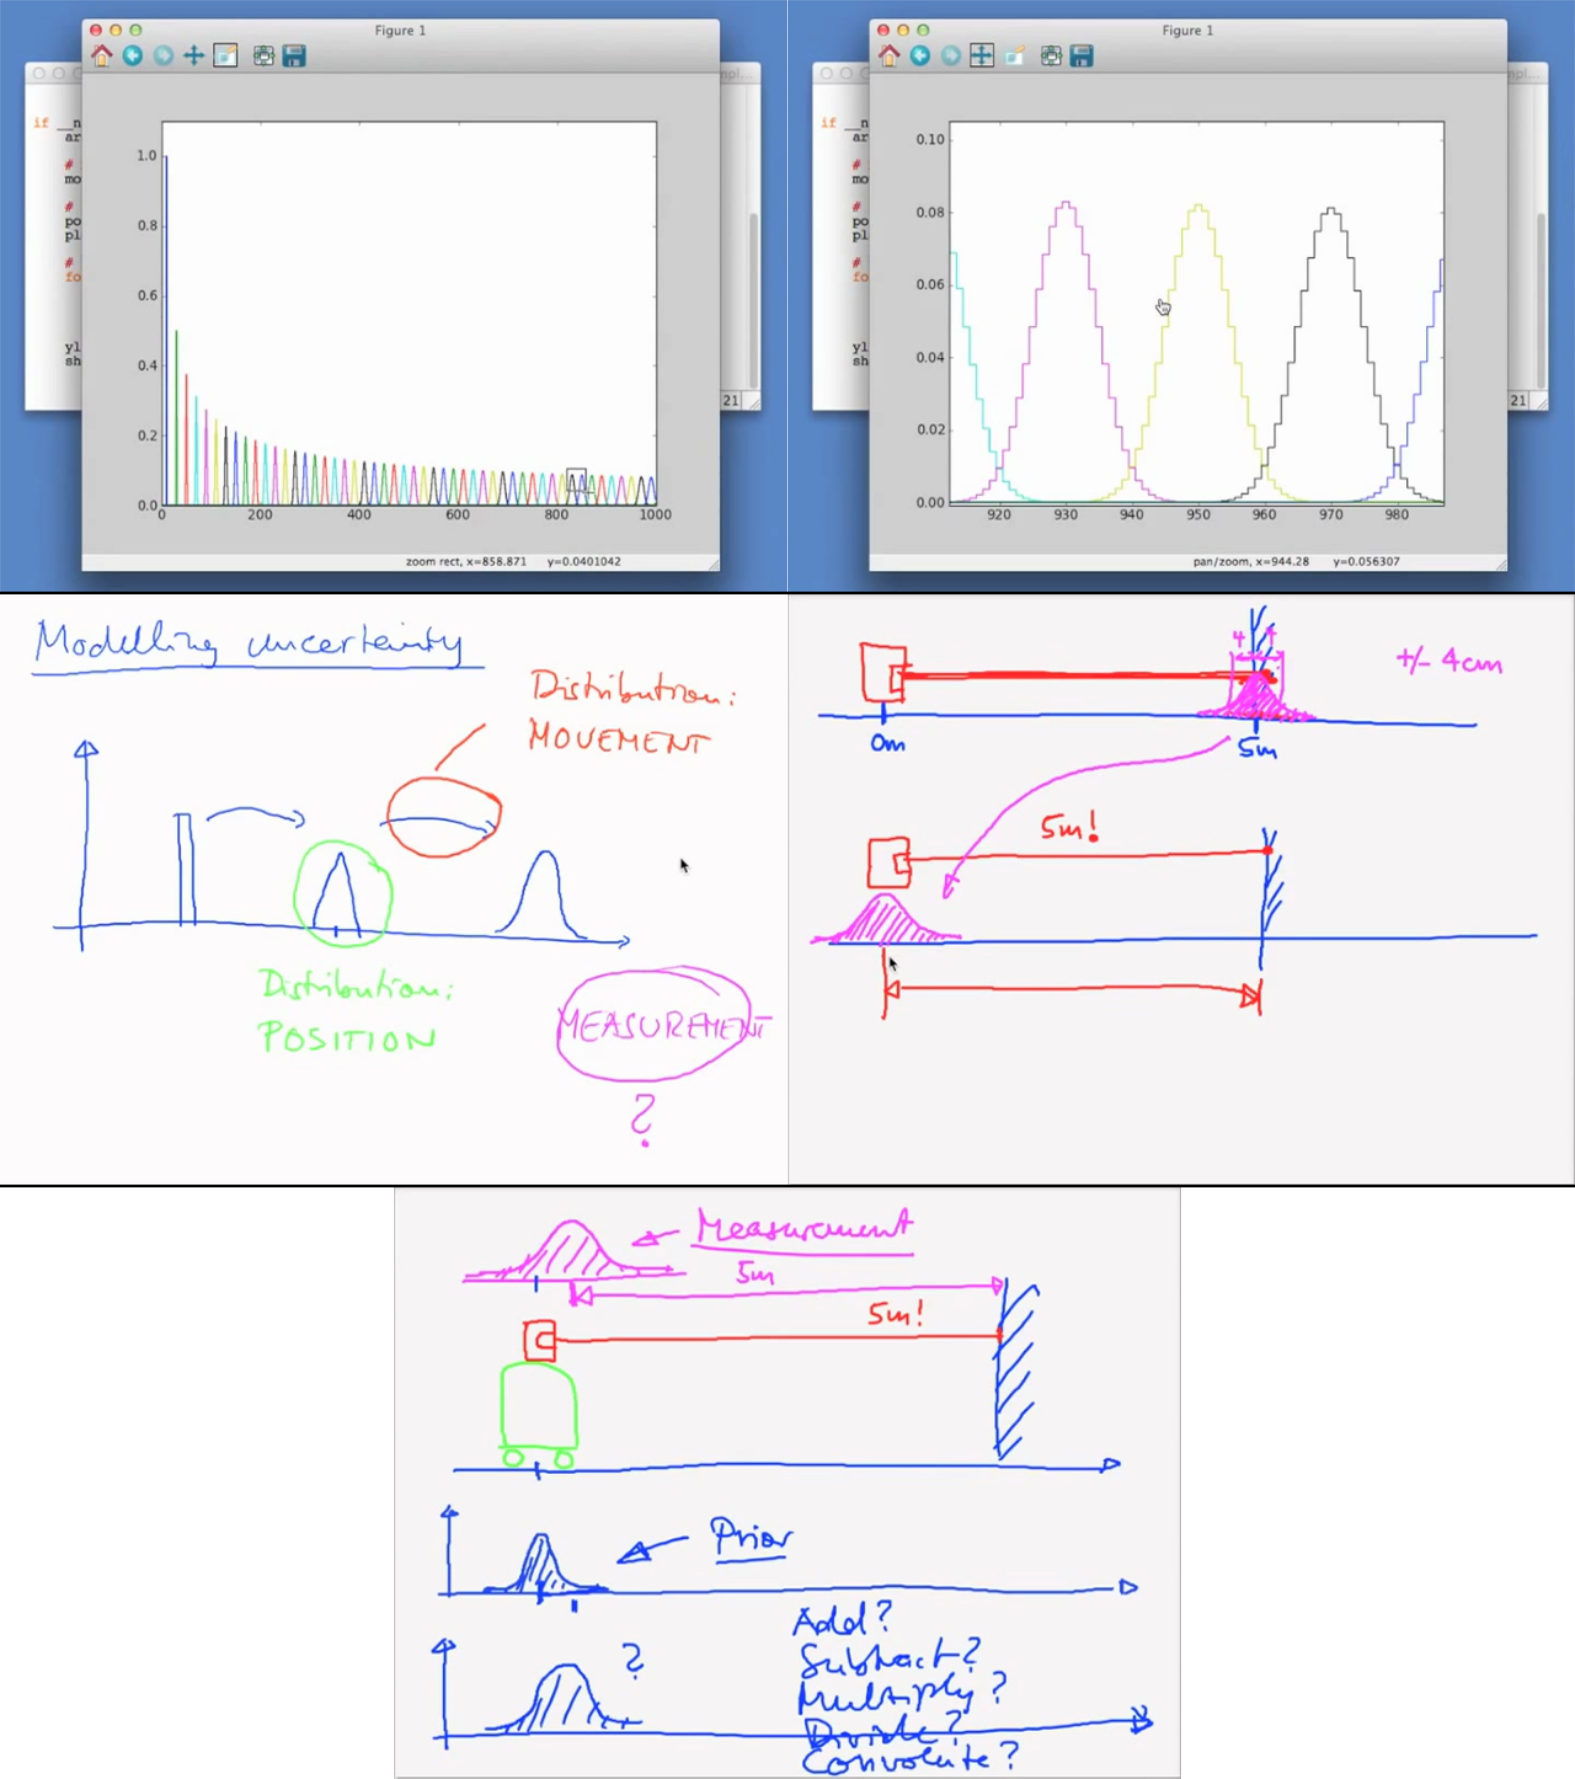 Figure 1
mpl...
if __n
ar
#
mo
#
po
pl
#
fo
yl
sh
21
1.0
0.8
0.6
0.4
0.2
0.0
0 200 400 600 800 1000
zoom rect, x=858.871 y=0.0401042
Figure 1
mpl...
if __n
ar
#
mo
#
po
pl
#
fo
yl
sh
21
0.10
0.08
0.06
0.04
0.02
0.00
920 930 940 950 960 970 980
pan/zoom, x=944.28 y=0.056307
Modelling uncertainty
Distribution:
MOVEMENT
Distribution:
POSITION
MEASUREMENT
?
4 4
+/- 4cm
0m 5m
5m!
Measurement
5m
5m!
Prior
?
Add?
Subtract?
Multiply?
Divide?
Convolute?